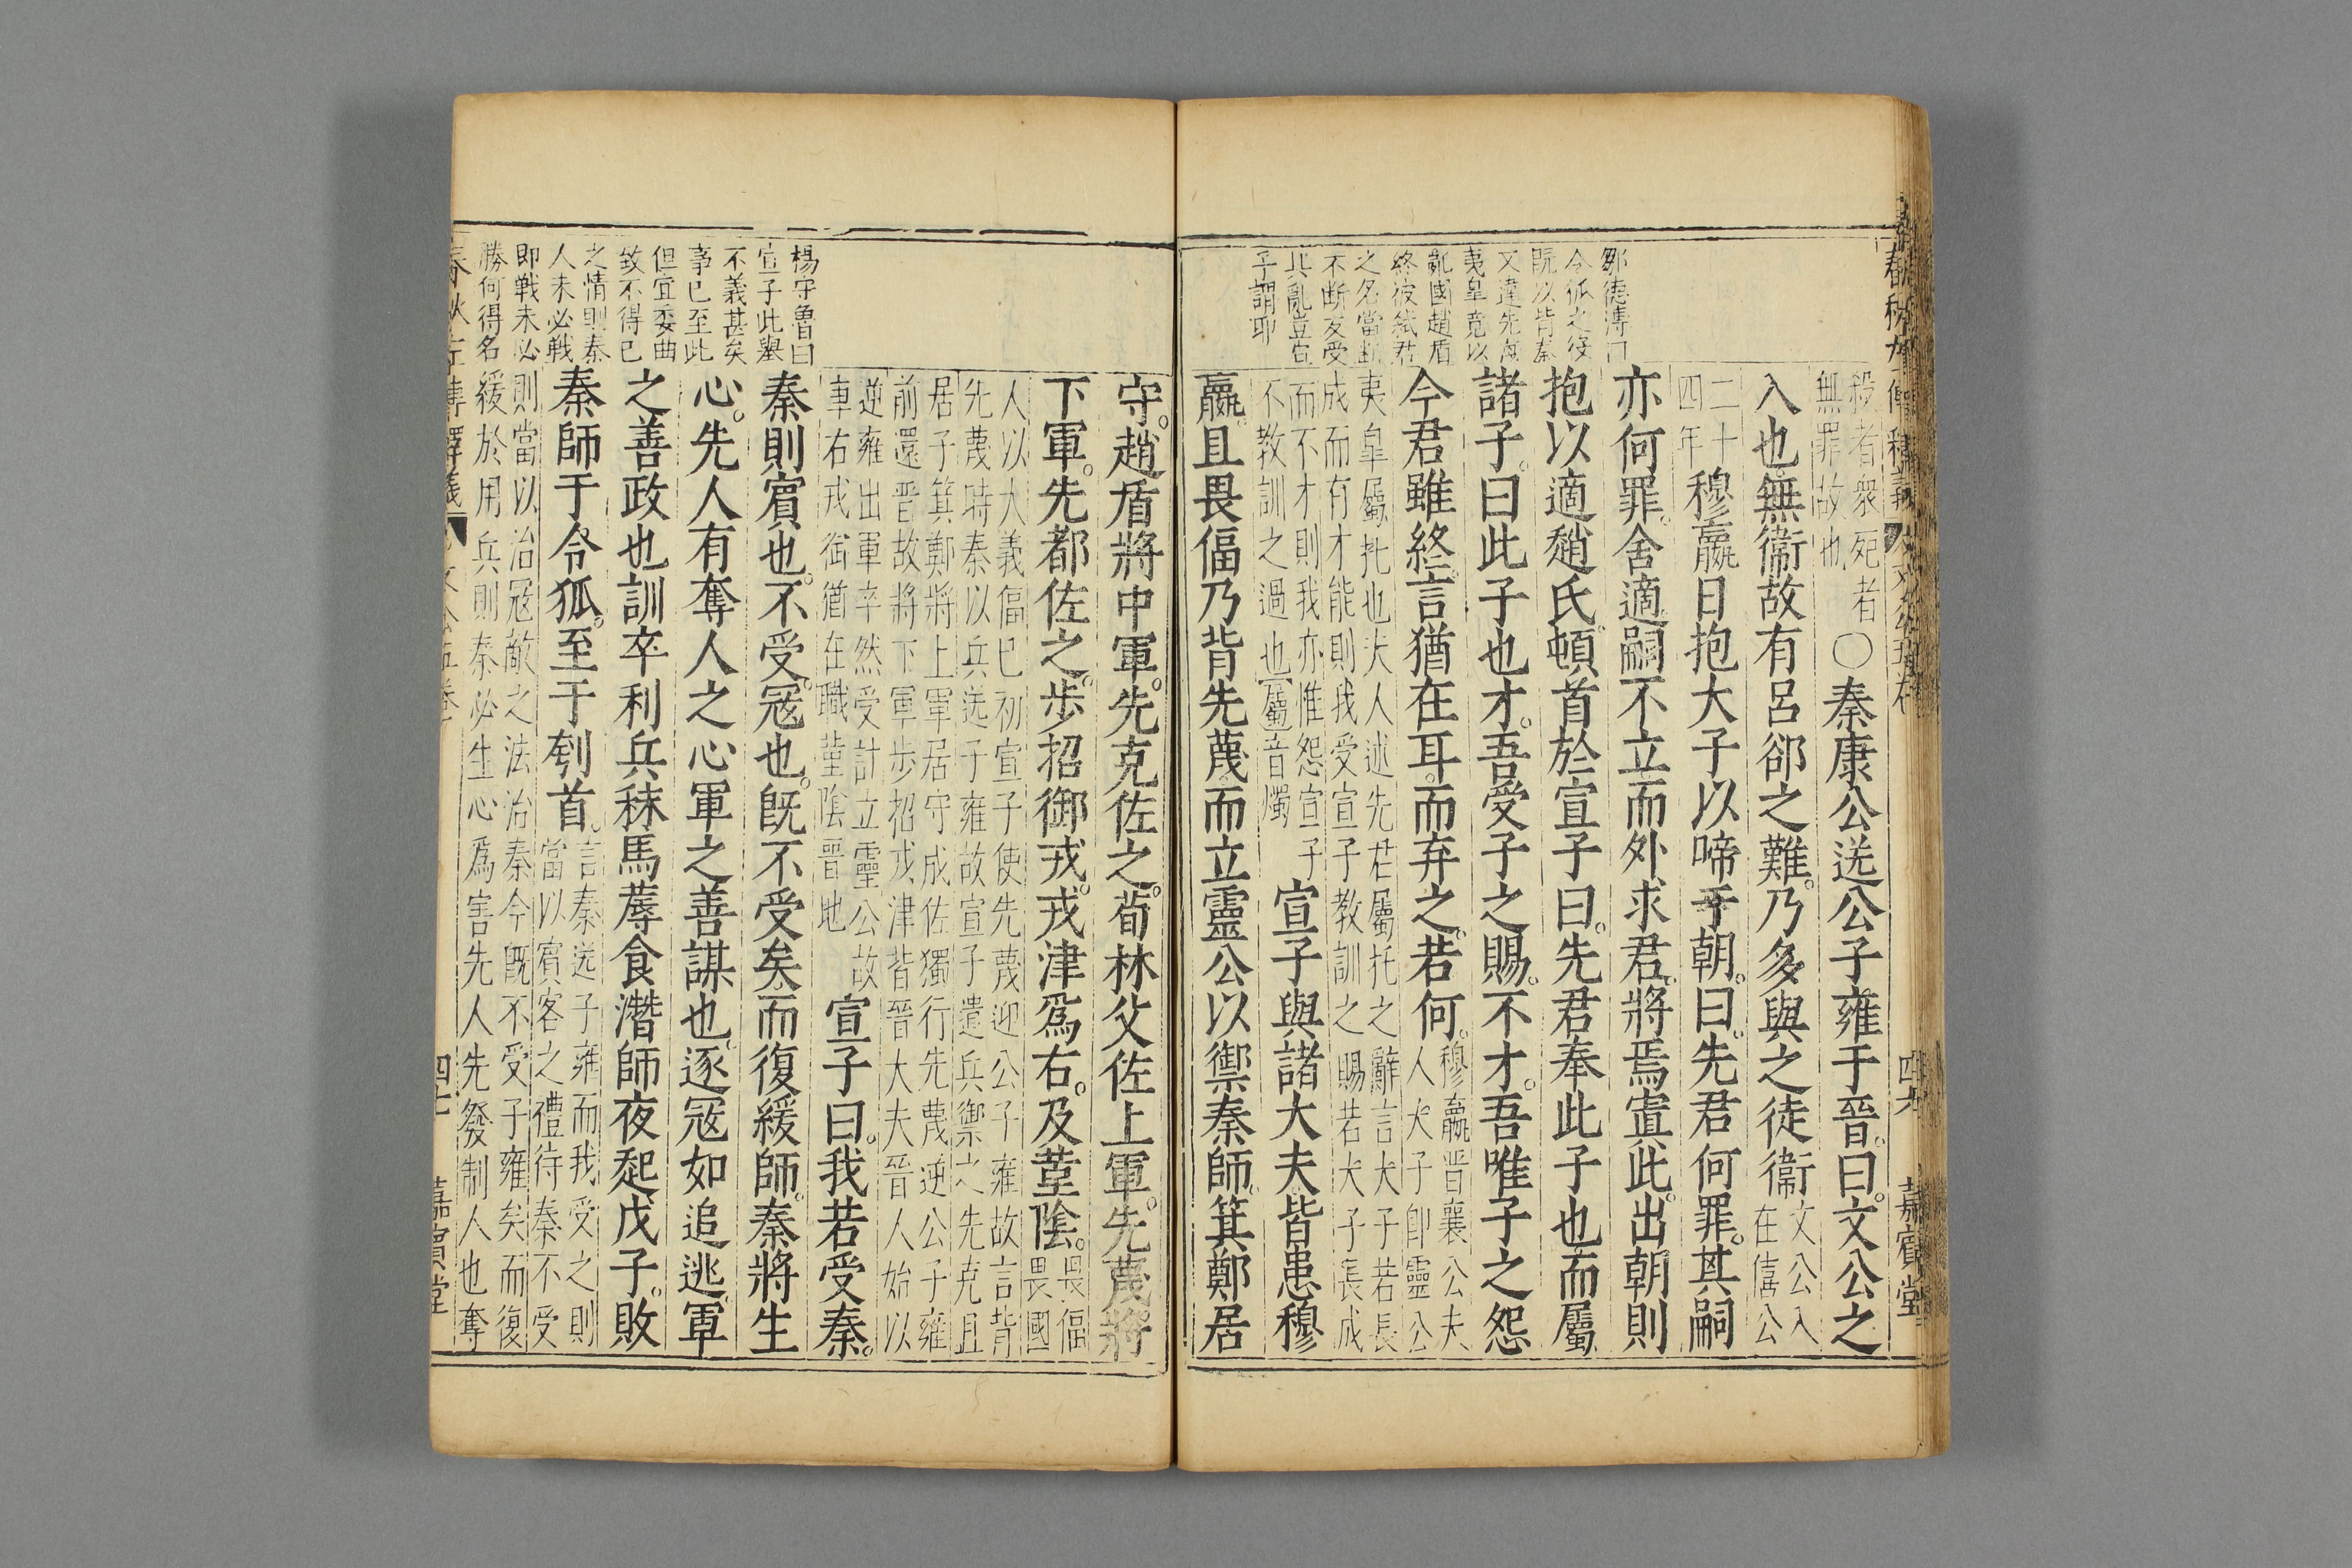 殺者衆死者
無罪故也
〇秦康公送公子雍于晉。曰。文公之
入也無衞故有呂郤之難。乃多與之徒衞
文公入
在僖公
二十
四年
穆嬴日抱大子以啼乎朝。曰。先君何罪。其嗣
亦何罪。舍適嗣不立而外求君。將焉寘此。出朝則
抱以適趙氏。頓首於宣子曰。先君奉此子也而屬
諸子。曰此子也才。吾受子之賜。不才。吾唯子之怨
今君雖終。言猶在耳。而弃之。若何。
穆嬴晋襄公夫
人大子卽靈公
夷皐屬托也夫人述先君屬托之辭言大子若長
成而有才能則我受宣子教訓之賜若大子長成
而不才則我亦惟怨宣子
不教訓之過也屬音燭
宣子與諸大夫皆患穆
嬴。且畏偪乃背先蔑而立靈公以禦秦師。箕鄭居
鄒德溥曰
令狐之役
既以背秦
又違先蔑
夷皐竟以
亂國趙盾
終被弑君
之名當斷
不斷反受
其亂豈宣
子謂耶
四六
嘉賓堂
守。趙盾將中軍。先克佐之。荀林父佐上軍。先蔑將
下軍。先都佐之。步招御戎。戎津爲右。及菫隂。
畏偪
畏國
人以大義偪已初宣子使先蔑迎公子雍故言背
先蔑時秦以兵送子雍故宣子遣兵禦之先克且
居子箕鄭將上軍居守成佐獨行先蔑逆公子雍
前還晋故將下軍步招戎津皆晉大夫晋人始以
逆雍出軍卒然受計立靈公故
車右戎御猶在職菫隂晋地
宣子曰。我若受秦。
秦則賓也。不受。寇也。旣不受矣而復緩師。秦將生
心。先人有奪人之心軍之善謀也。逐寇如追逃。軍
之善政也訓卒利兵秣馬蓐食潛師夜起戊子。敗
秦師于令狐。至于刳首。
言秦送子雍而我受之則
當以賓客之禮待秦不受
則當以治冦敵之法治秦今旣不受子雍矣而復
緩於用兵則秦必生心爲害先人先發制人也奪
楊守魯曰
宣子此舉
不義甚矣
事已至此
但宜委曲
致不得已
之情則秦
人未必戰
即戰未必
勝何得名
春秋左傳釋義
文公五卷
四七
嘉賓堂